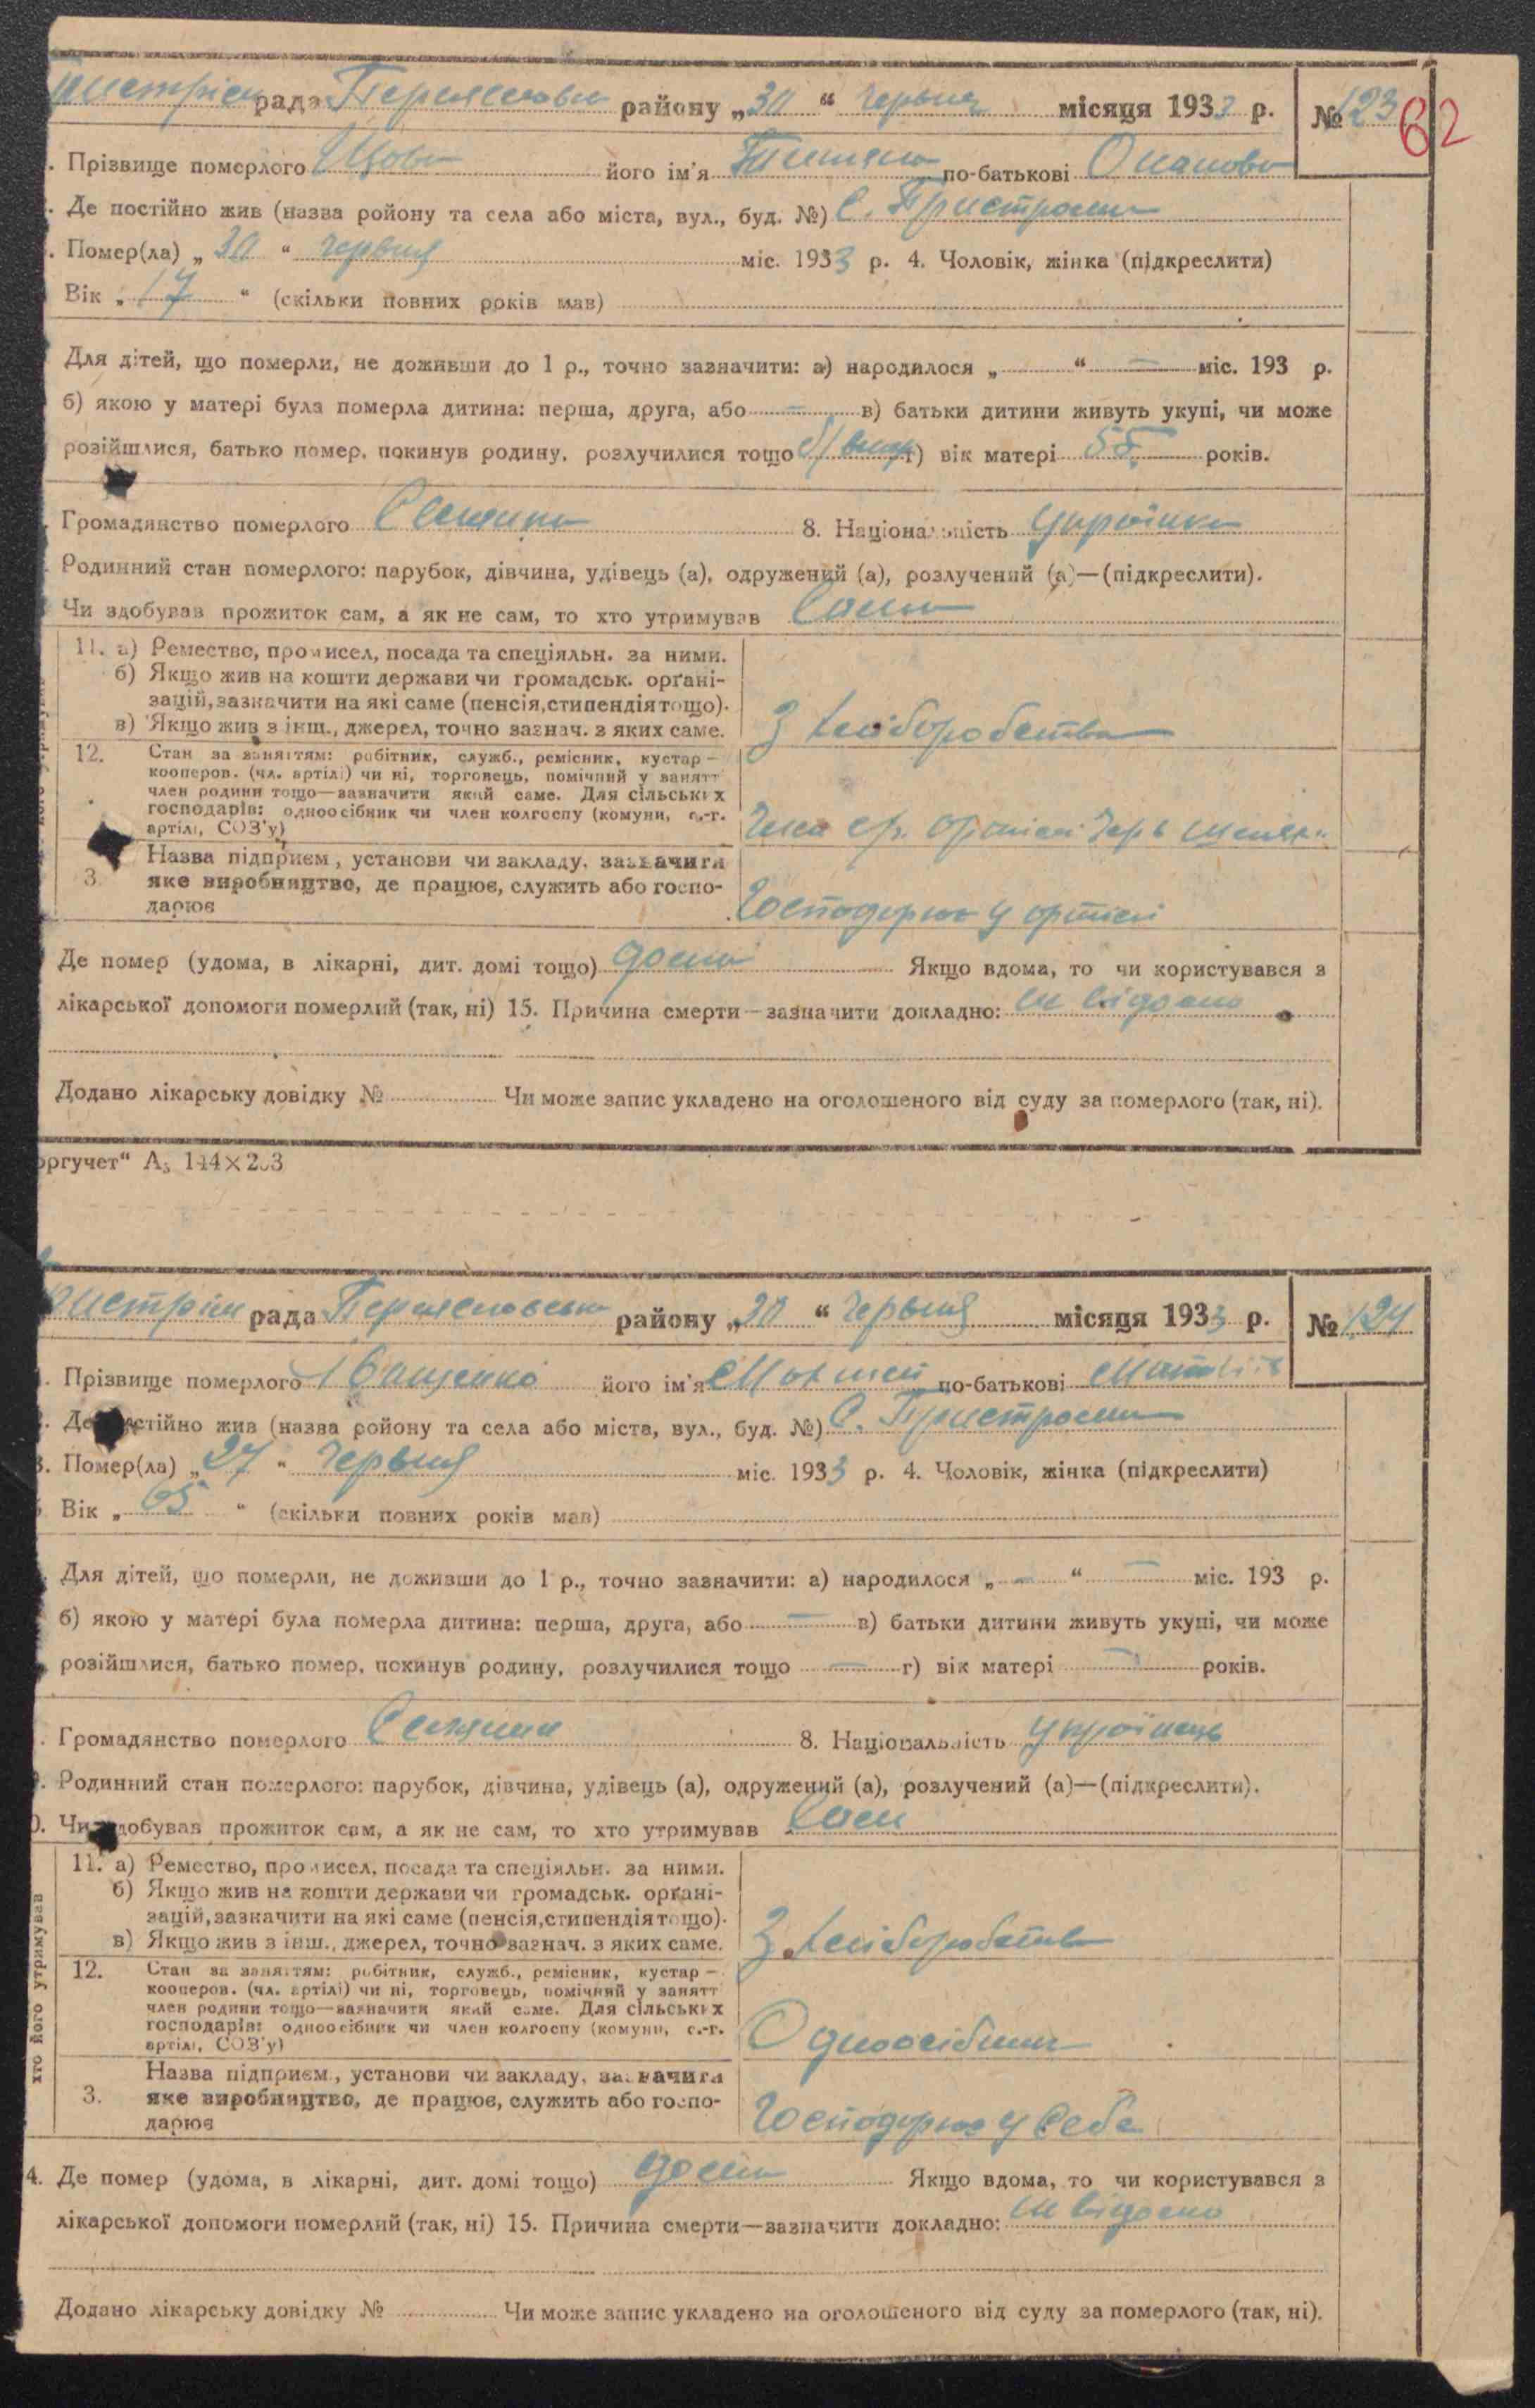 рада Переяслов району „30“ червня місяця 1933 р. №123
62
Прізвище померлого його ім'я по-батькові
Де постійно жив (назва ройону та села або міста, вул., буд. №) С. Пристроми
Помер(ла) „30“ червня міс. 1933 р. 4. Чоловік, жінка (підкреслити)
Вік „17“ (скільки повних років мав)
Для дітей, що померли, не доживши до 1 р., точно зазначити: а) народилося „ “ — міс. 193 р.
б) якою у матері була померла дитина: перша, друга, або — в) батьки дитини живуть укупі, чи може
розійшлися, батько помер, покинув родину, розлучилися тощо г) вік матері 55 років.
Громадянство померлого Селянка 8. Національність Українка
Родинний стан померлого: парубок, дівчина, удівець (а), одружений (а), розлучений (а)—(підкреслити).
Чи здобував прожиток сам, а як не сам, то хто утримував Сама
11. а) Ремество, промисел, посада та спеціяльн. за ними.
б) Якщо жив на кошти держави чи громадськ. орґані-
зацій, зазначити на які саме (пенсія, стипендія тощо).
в) Якщо жив з інш., джерел, точно зазнач. з яких саме.
З хліборобства
12. Стан за заняттям: робітник, служб., ремісник, кустар—
кооперов. (чл. артілі) чи ні, торговець, помічний у занятт
член родини тощо—зазначити який саме. Для сільських
господарів: одноосібник чи член колгоспу (комуни, с.-г.
артілі, СОЗ'у)
Назва підприєм., установи чи закладу, зазначити
3. яке виробництво, де працює, служить або госпо-
дарює
Господарює у артілі
Де помер (удома, в лікарні, дит. домі тощо) дома Якщо вдома, то чи користувався з
лікарської допомоги померлий (так, ні) 15. Причина смерти—зазначити докладно: не відомо
Додано лікарську довідку № Чи може запис укладено на оголошеного від суду за померлого (так, ні).
оргучет“ А5 144×203
рада Переясловськ району „30“ червня місяця 1933 р. №124
Прізвище померлого Іващенко його ім'я Мойсей по-батькові
Де постійно жив (назва ройону та села або міста, вул., буд. №) С. Пристроми
3. Помер(ла) „27“ червня міс. 1933 р. 4. Чоловік, жінка (підкреслити)
Вік „65“ (скільки повних років мав)
Для дітей, що померли, не доживши до 1 р., точно зазначити: а) народилося „—“ — міс. 193 р.
б) якою у матері була померла дитина: перша, друга, або — в) батьки дитини живуть укупі, чи може
розійшлися, батько помер, покинув родину, розлучилися тощо — г) вік матері — років.
Громадянство померлого Селянин 8. Національність Українець
9. Родинний стан померлого: парубок, дівчина, удівець (а), одружений (а), розлучений (а)—(підкреслити).
0. Чи здобував прожиток сам, а як не сам, то хто утримував Сам
хто його утримував
11. а) Ремество, промисел, посада та спеціяльн. за ними.
б) Якщо жив на кошти держави чи громадськ. орґані-
зацій, зазначити на які саме (пенсія, стипендія тощо).
в) Якщо жив з інш., джерел, точно зазнач. з яких саме.
З хліборобства
12. Стан за заняттям: робітник, служб., ремісник, кустар—
кооперов. (чл. артілі) чи ні, торговець, помічний у занятт
член родини тощо—зазначити який саме. Для сільських
господарів: одноосібник чи член колгоспу (комуни, с.-г.
артілі, СОЗ'у)
Одноосібник
Назва підприєм., установи чи закладу, зазначити
3. яке виробництво, де працює, служить або госпо-
дарює
Господарює у себе
4. Де помер (удома, в лікарні, дит. домі тощо) дома Якщо вдома, то чи користувався з
лікарської допомоги померлий (так, ні) 15. Причина смерти—зазначити докладно: не відомо
Додано лікарську довідку № Чи може запис укладено на оголошеного від суду за померлого (так, ні).